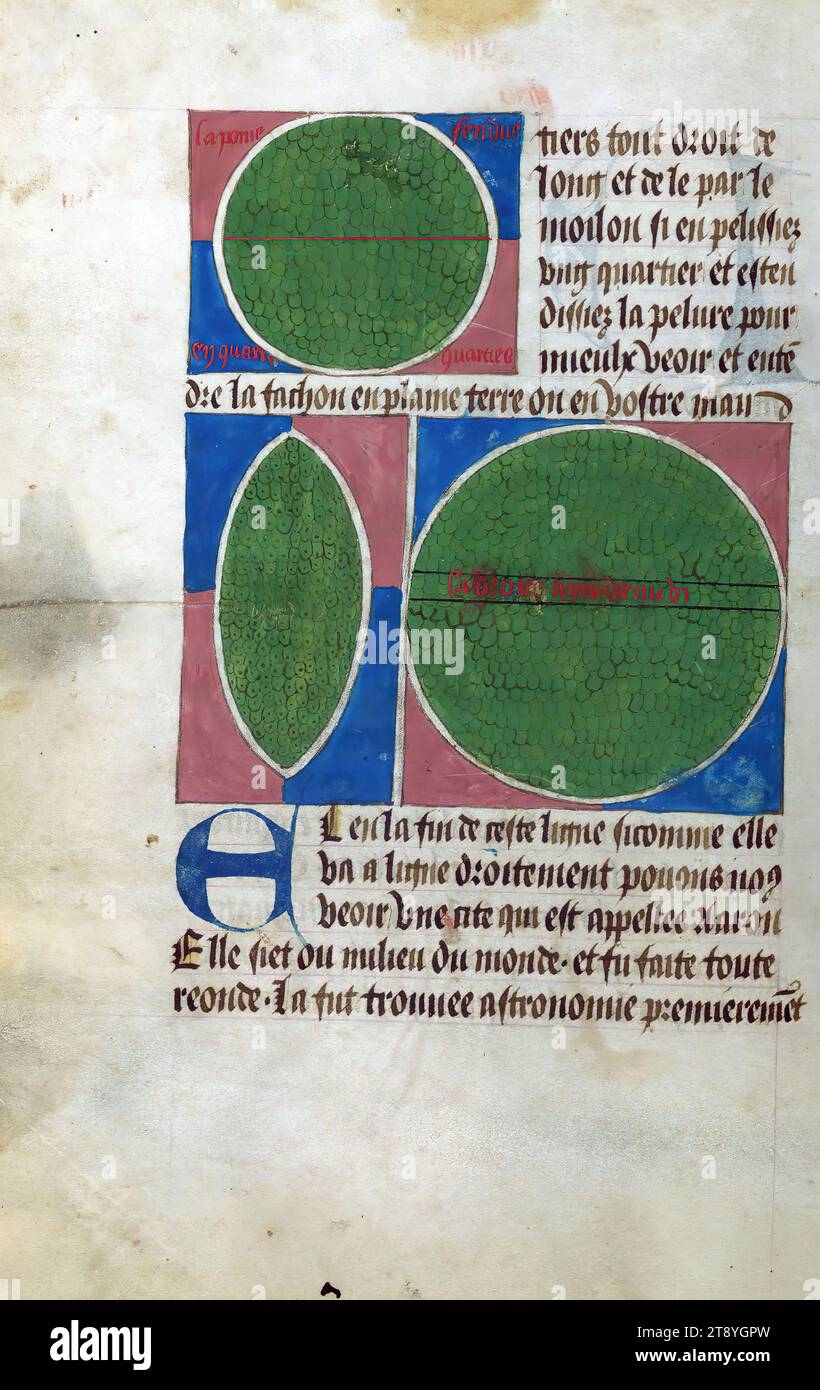 la pome fendue
en quatre quartiers
tiers tout droit de
long et de le par le
moilon si en pelissiez
vng quartier et esten
dissiez la pelure pour
mieulx veoir et entē
dre la fachon en plaine terre ou en vostre main
la
Et en la fin de ceste ligne sicomme elle
va a ligne droitement pouons nos
veoir vne cite qui est appellee Aaron
Elle siet ou milieu du monde· et fu faite toute
reonde· La fut trouuee astronomie premieremēt
alamy
Image ID: 2T8YGPW
www.alamy.com